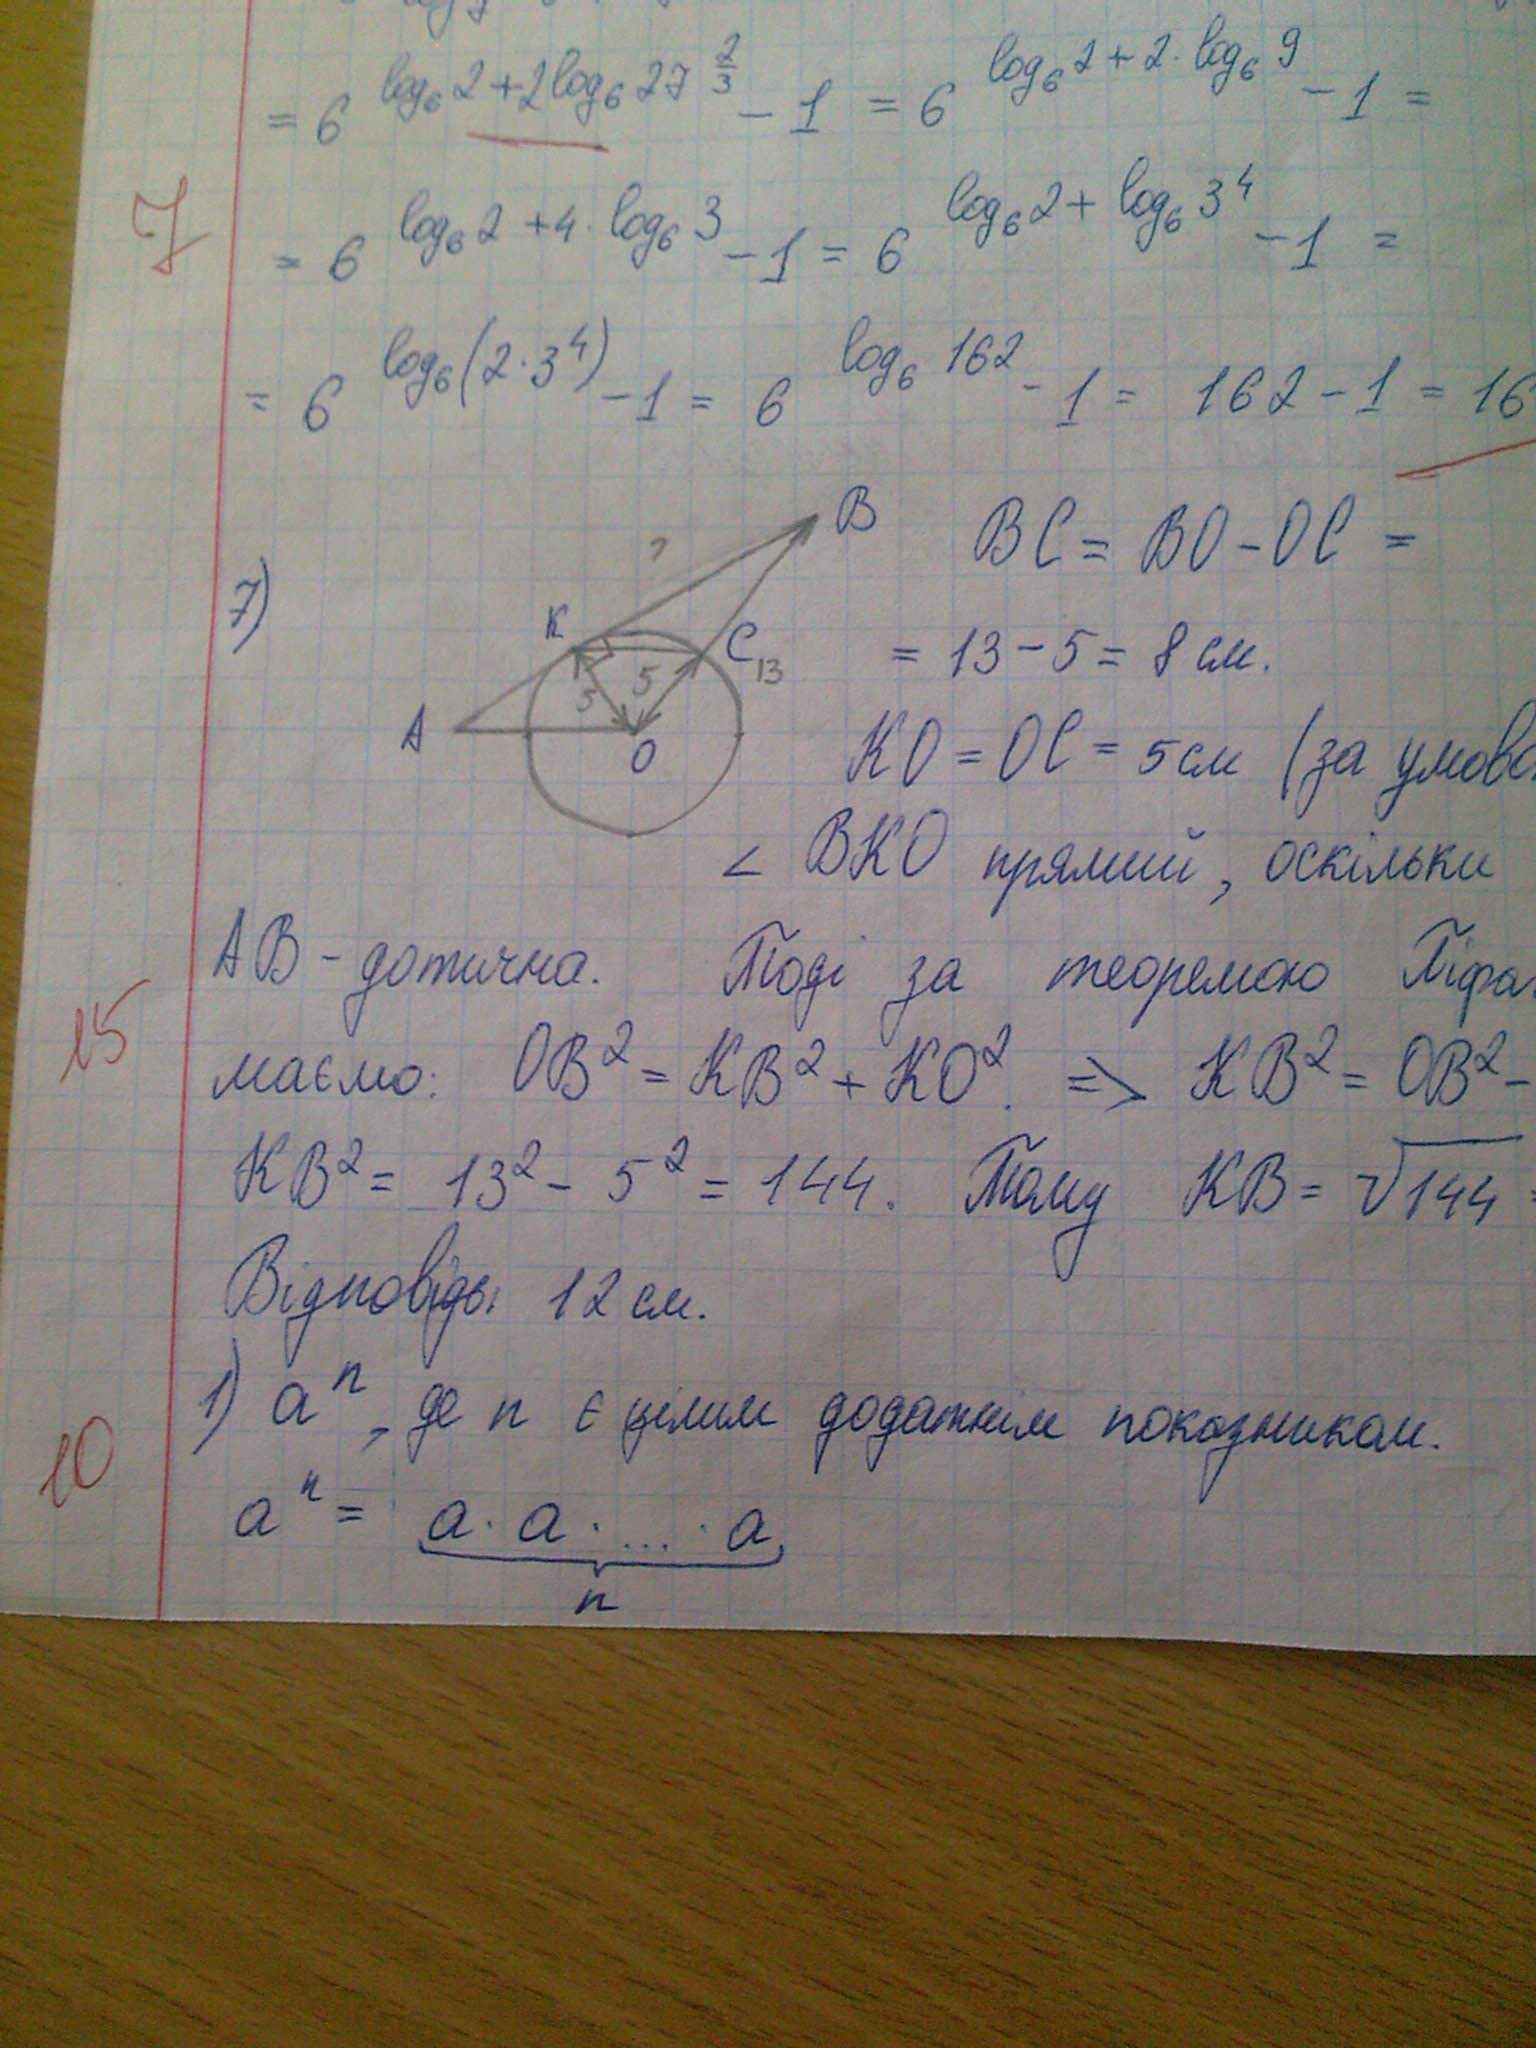 = 6^{log₆2 + 2log₆27^{2/3}} - 1 = 6^{log₆2 + 2·log₆9} - 1 =
7
= 6^{log₆2 + 4·log₆3} - 1 = 6^{log₆2 + log₆3⁴} - 1 =
= 6^{log₆(2·3⁴)} - 1 = 6^{log₆162} - 1 = 162 - 1 = 16
7)
B
?
K
C
13
5
5
A
O
BC = BO - OC =
= 13 - 5 = 8 см.
KO = OC = 5 см (за умово
∠ BKO прямий, оскільки
AB - дотична. Тоді за теоремою Піфа
15
маємо: OB² = KB² + KO². => KB² = OB² -
KB² = 13² - 5² = 144. Тому KB = √144 =
Відповідь: 12 см.
1) aⁿ, де n є цілим додатнім показником.
10
aⁿ = a · a · ... · a,
n